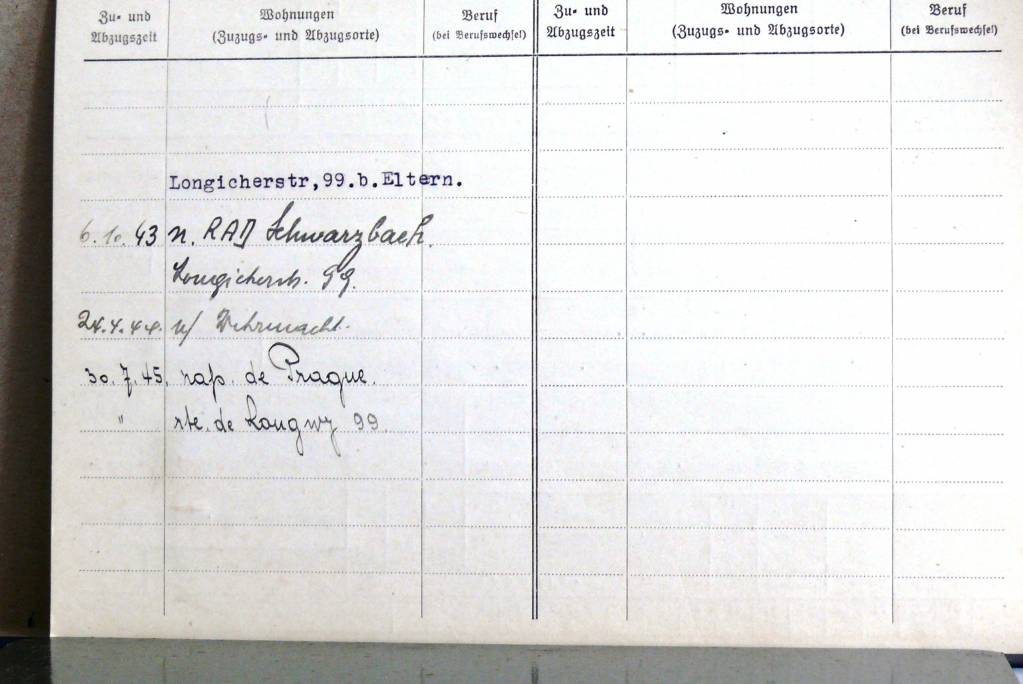 Zu- und Abzugszeit
Wohnungen (Zuzugs- und Abzugsorte)
Beruf (bei Berufswechsel)
Zu- und Abzugszeit
Wohnungen (Zuzugs- und Abzugsorte)
Beruf (bei Berufswechsel)
Longicherstr,99.b.Eltern.
6.10.43 n. RAD Schwarzbach.
Longicherstr. 99.
24.4.44. n/ Wehrmacht.
30.7.45. rap. de Prague.
" rte. de Longwy 99.